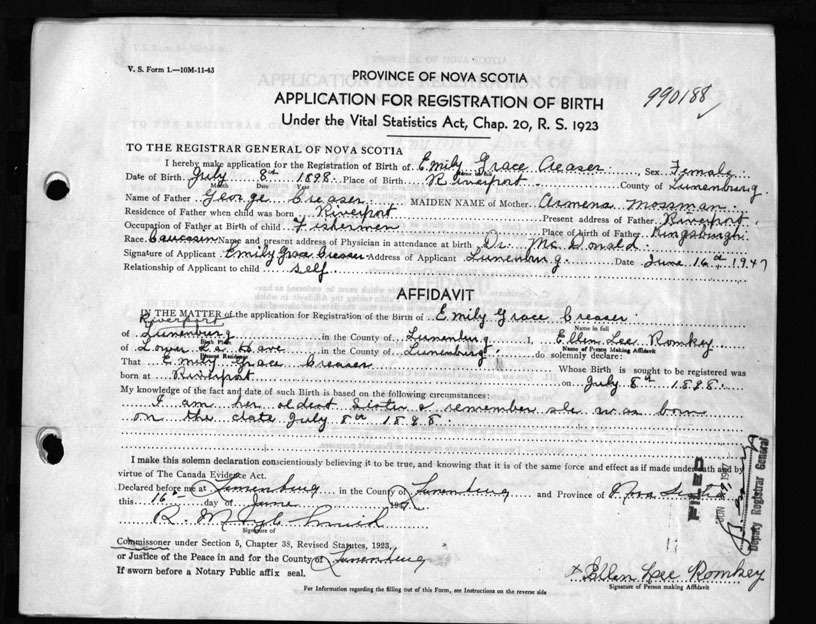 V. S. Form 1.—10M-11-43
PROVINCE OF NOVA SCOTIA
APPLICATION FOR REGISTRATION OF BIRTH
990188
Under the Vital Statistics Act, Chap. 20, R. S. 1923
TO THE REGISTRAR GENERAL OF NOVA SCOTIA
I hereby make application for the Registration of Birth of Emily Grace Creaser, Sex Female
Date of Birth July 8th 1898 Place of Birth Riverport County of Lunenburg
Month Date Year
Name of Father George Creaser MAIDEN NAME of Mother Armena Mossman
Residence of Father when child was born Riverport Present address of Father Riverport
Occupation of Father at Birth of child Fishermen Place of birth of Father Kingsburgh
Race Name and present address of Physician in attendance at birth Dr. Mc Donald
Signature of Applicant Emily Grace Creaser Address of Applicant Lunenburg Date June 16th 1947
Relationship of Applicant to child self
AFFIDAVIT
IN THE MATTER of the application for Registration of the Birth of Emily Grace Creaser
Riverport
Name in full
of Lunenburg in the County of Lunenburg I, Ellen Lee Romkey
Birth Place Name of Person Making Affidavit
of Lower La Have in the County of Lunenburg do solemnly declare:
Present Residence
That Emily Grace Creaser Whose Birth is sought to be registered was
born at Riverport on July 8th 1898
My knowledge of the fact and date of such Birth is based on the following circumstances:
I am her oldest sister & remember she was born
on the date July 8th 1898
I make this solemn declaration conscientiously believing it to be true, and knowing that it is of the same force and effect as if made under oath and by
virtue of The Canada Evidence Act.
Declared before me at Lunenburg in the County of Lunenburg and Province of Nova Scotia
this 16th day of June 1947
Signature of
Commissoner under Section 5, Chapter 38, Revised Statutes, 1923,
or Justice of the Peace in and for the County of Lunenburg
If sworn before a Notary Public affix seal.
x Ellen Lee Romkey
Signature of Person making Affidavit
For Information regarding the filling out of this Form, see Instructions on the reverse side
FILED
Deputy Registrar General